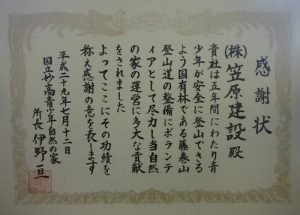 感謝状
(株)笠原建設 殿
貴社は五年間にわたり青
少年が安全に登山できる
よう国有林である藤巻山
登山道の整備にボランテ
ィアとして尽力し当自然
の家の運営に多大な貢献
をされました
よってここにその功績を
称え感謝の意を表します
平成二十九年七月十二日
国立妙高青少年自然の家
所長 伊野 亘